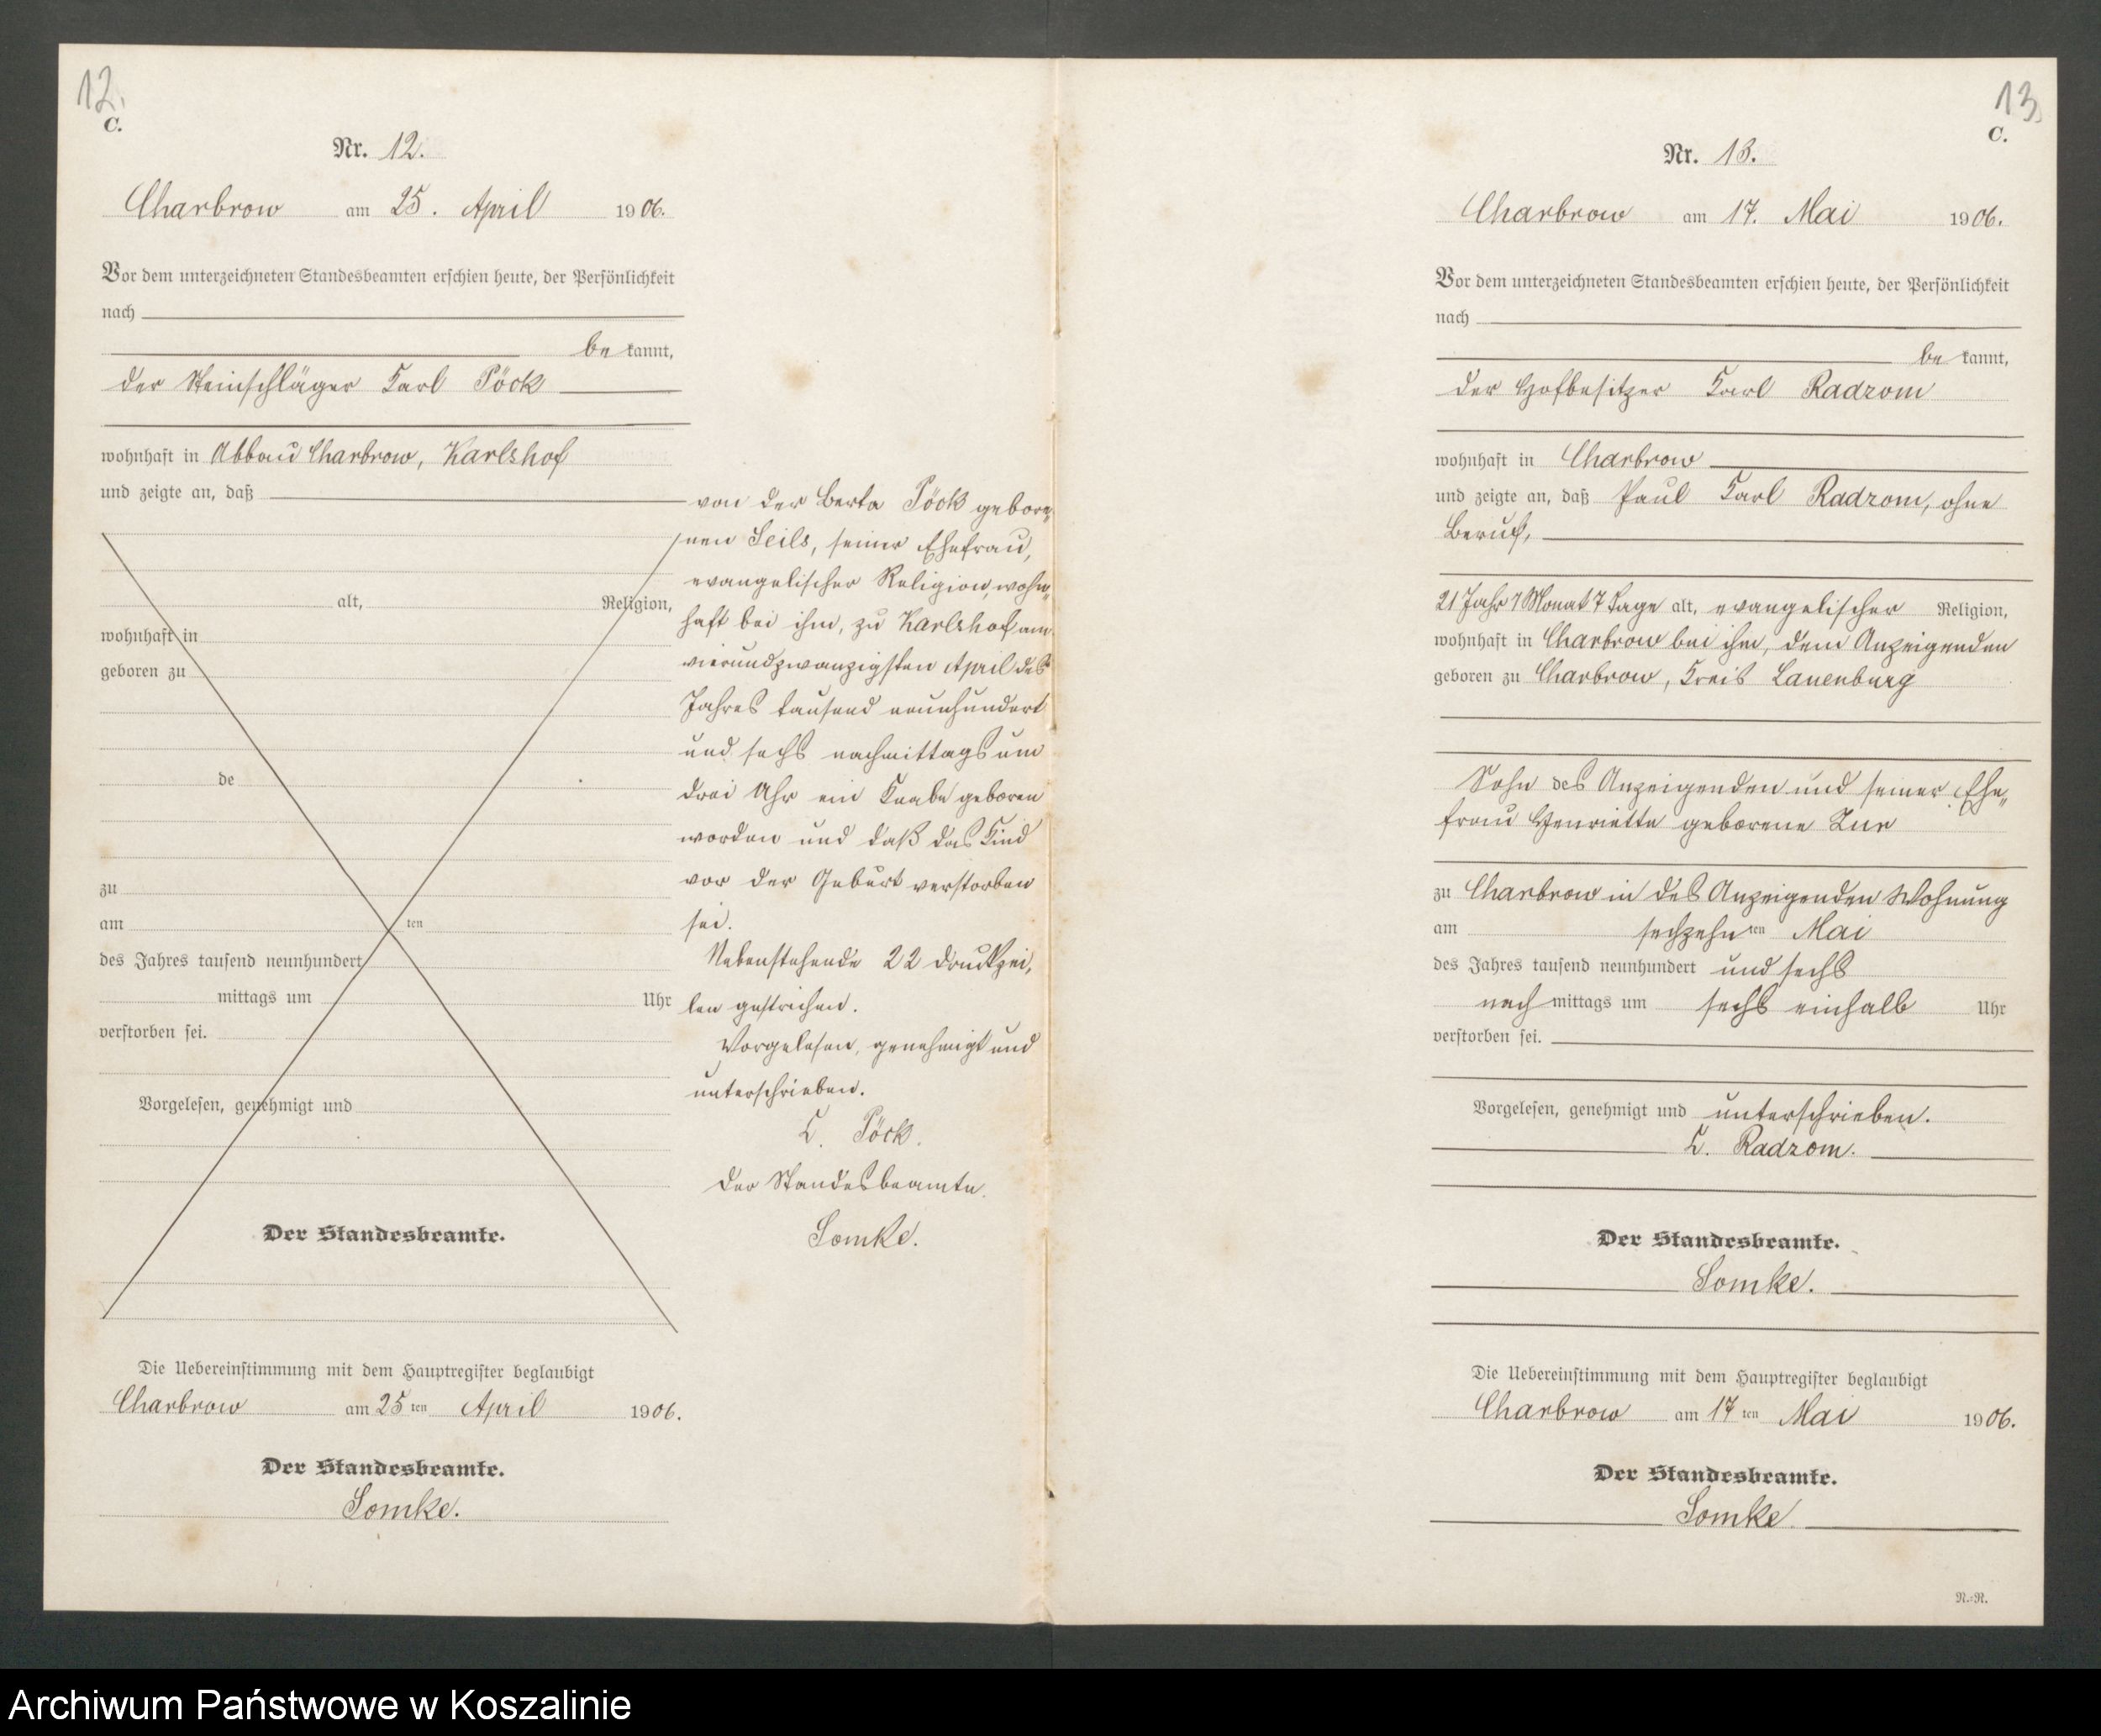 12.
C.
Nr. 12.
Charbrow am 25. April 1906.
Vor dem unterzeichneten Standesbeamten erschien heute, der Persönlichkeit
nach
be kannt,
der Steinschläger Karl Pöck
wohnhaft in Abbau Charbrow, Karlshof
und zeigte an, daß
alt, Religion,
wohnhaft in
geboren zu
de
zu
am ten
des Jahres tausend neunhundert
mittags um Uhr
verstorben sei.
Vorgelesen, genehmigt und
Der Standesbeamte.
von der Berta Pöck gebore„
nen Seils, seiner Ehefrau,
evangelischer Religion, wohn„
haft bei ihm, zu Karlshof am
vierundzwanzigsten April des
Jahres tausend neunhundert
und sechs nachmittags um
drei Uhr ein Knabe geboren
worden und daß das Kind
vor der Geburt verstorben
sei.
Nebenstehende 22 Druckzei„
len gestrichen.
Vorgelesen, genehmigt und
unterschrieben.
K. Pöck.
Der Standesbeamte.
Lomke.
Die Uebereinstimmung mit dem Hauptregister beglaubigt
Charbrow am 25 ten April 1906.
Der Standesbeamte.
Lomke.
13.
C.
Nr. 13.
Charbrow am 17. Mai 1906.
Vor dem unterzeichneten Standesbeamten erschien heute, der Persönlichkeit
nach
be kannt,
der Hofbesitzer Karl Radzom
wohnhaft in Charbrow
und zeigte an, daß Paul Karl Radzom, ohne
Beruf,
21 Jahr 7 Monat 7 Tage alt, evangelischer Religion,
wohnhaft in Charbrow bei ihm, dem Anzeigenden
geboren zu Charbrow, Kreis Lauenburg
Sohn des Anzeigenden und seiner Ehe„
frau Henriette geborene
zu Charbrow in des Anzeigenden Wohnung
am sechzehn ten Mai
des Jahres tausend neunhundert und sechs
nach mittags um sechs einhalb Uhr
verstorben sei.
Vorgelesen, genehmigt und unterschrieben.
K. Radzom.
Der Standesbeamte.
Lomke.
Die Uebereinstimmung mit dem Hauptregister beglaubigt
Charbrow am 17 ten Mai 1906.
Der Standesbeamte.
Lomke.
N.-R.
Archiwum Państwowe w Koszalinie